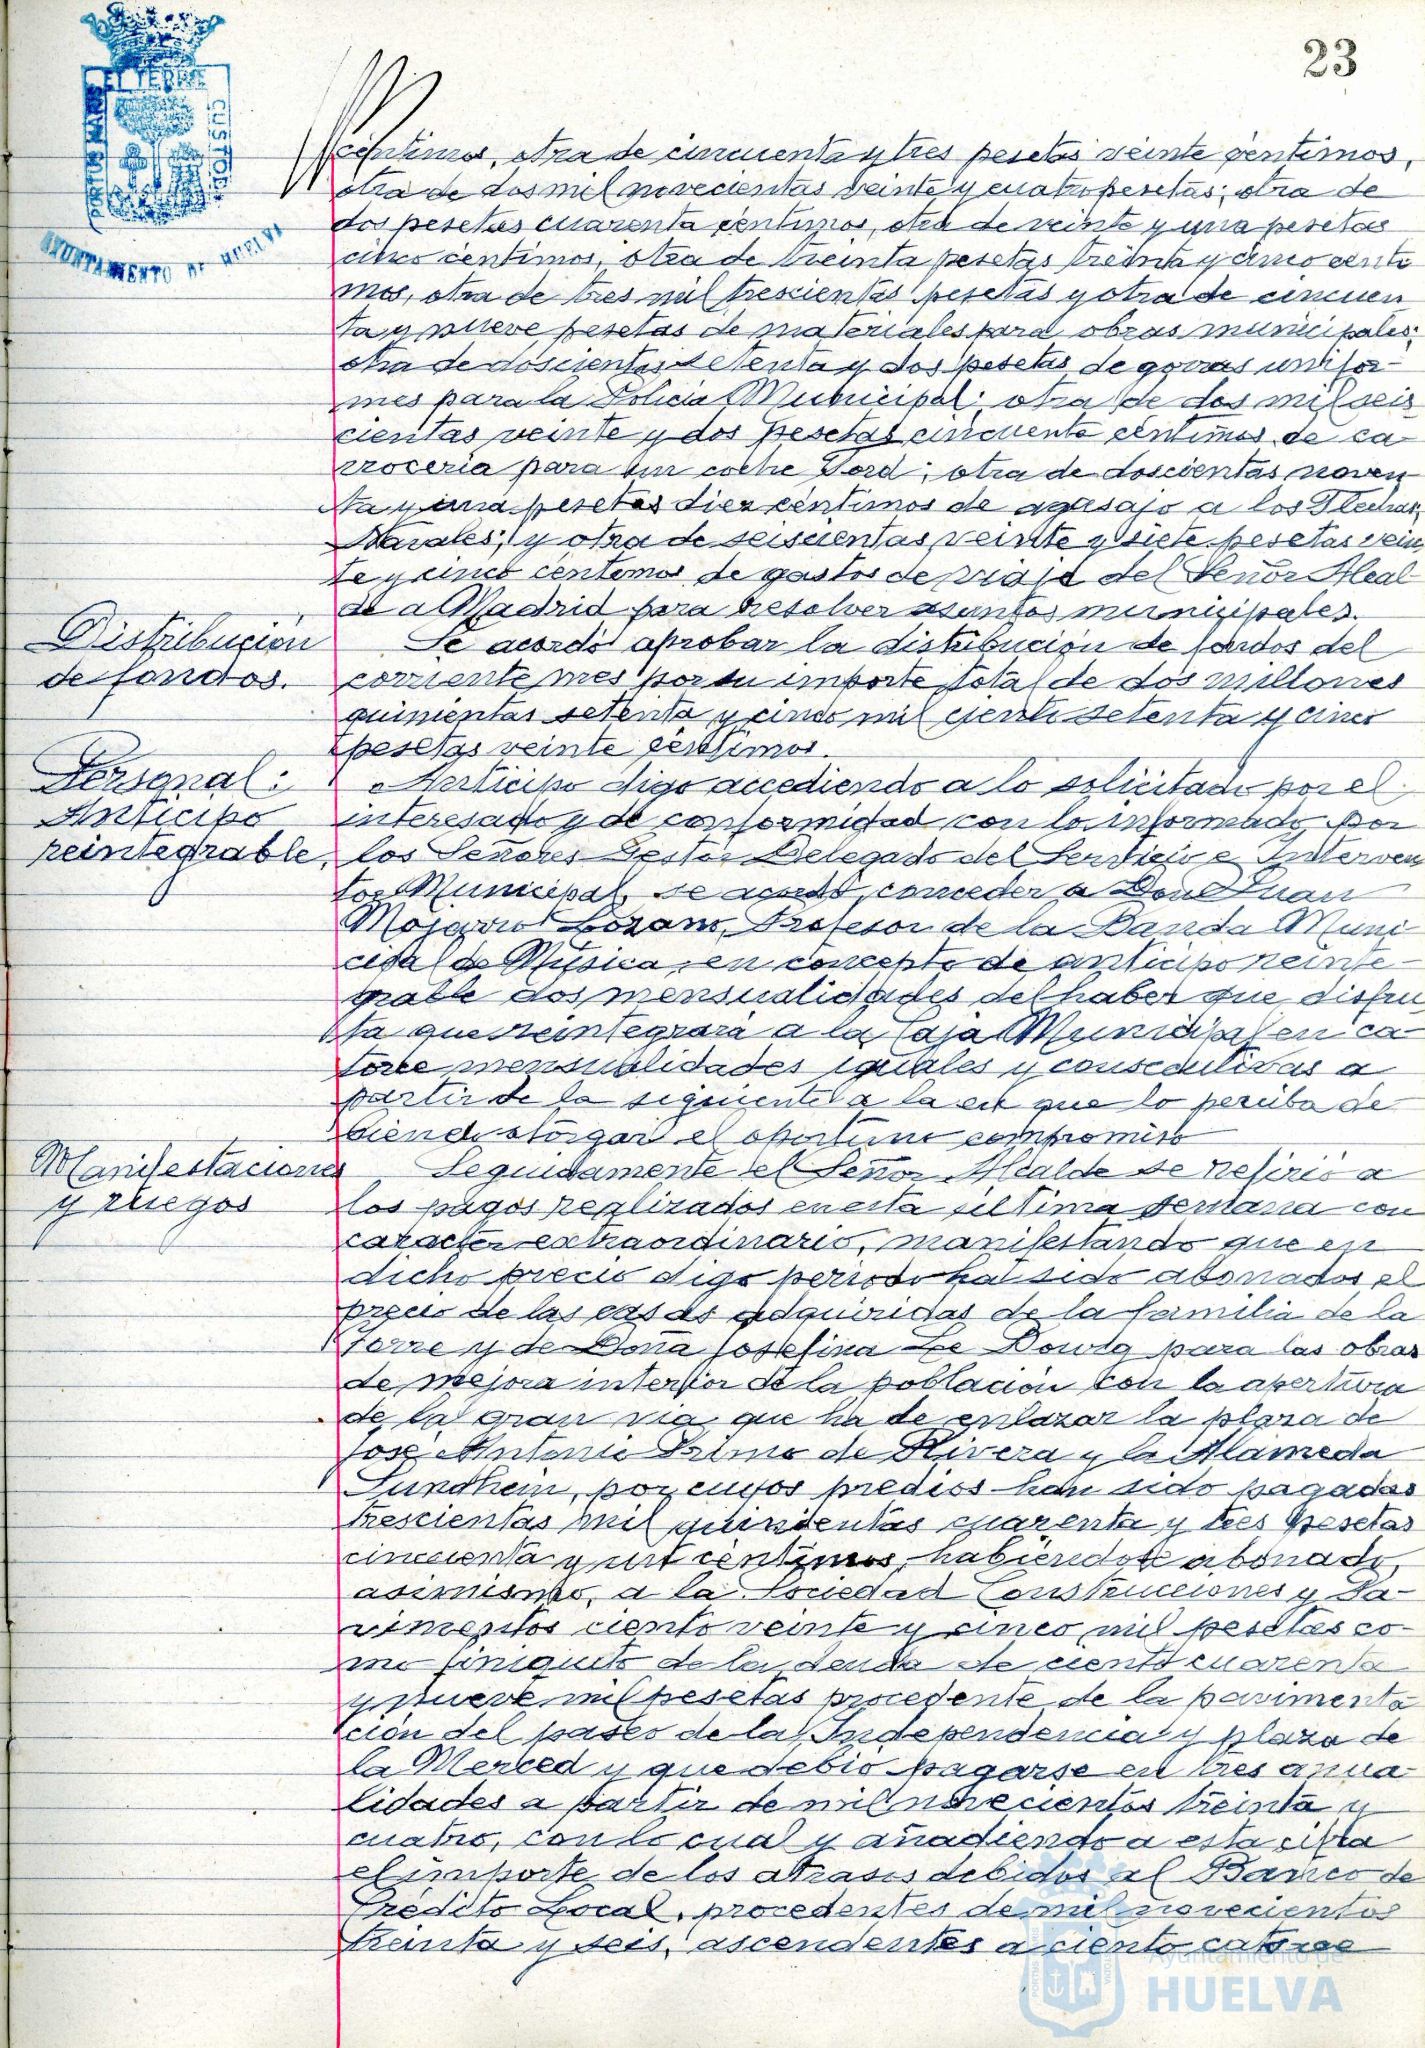 23
EI TERRE
PORTUS MARIS
CUSTOD
AYUNTAMIENTO DE HUELVA
céntimos, otra de cincuenta y tres pesetas veinte céntimos,
otra de dos mil novecientas veinte y cuatro pesetas; otra de
dos pesetas cuarenta céntimos, otra de veinte y una pesetas
cinco céntimos, otra de treinta pesetas treinta y cinco cénti
mos, otra de tres mil trescientas pesetas y otra de cincuen
ta y nueve pesetas de materiales para obras municipales;
otra de doscientas setenta y dos pesetas de gorras unifor-
mes para la Policia Municipal; otra de dos mil seis
cientas veinte y dos pesetas cincuenta céntimos de ca-
rrocería para un coche Ford; otra de doscientas noven
ta y una pesetas diez céntimos de agasajo a los Flechas
Navales; y otra de seiscientas veinte y siete pesetas vein
te y cinco céntimos de gastos de viaje del Señor Alcal-
de a Madrid para resolver asuntos municipales.
Distribución
de fondos.
Se acordó aprobar la distribución de fondos del
corriente mes por su importe total de dos millones
quinientas setenta y cinco mil ciento setenta y cinco
pesetas veinte céntimos.
Personal:
Anticipo
reintegrable.
Anticipo digo accediendo a lo solicitado por el
interesado y de conformidad con lo informado por
los Señores Gestor Delegado del Servicio e Interven
tor Municipal, se acordó conceder a Don Juan
Mojarro Lozano, Profesor de la Banda Muni
cipal de Música, en concepto de anticipo reinte-
grable dos mensualidades del haber que disfru
ta que reintegrará a la Caja Municipal en ca-
torce mensualidades iguales y consecutivas a
partir de la siguiente a la en que lo perciba de
biendo otorgar el oportuno compromiso
Manifestaciones
y ruegos
Seguidamente el Señor Alcalde se refirió a
los pagos realizados en esta última semana con
caracter extraordinario, manifestando que en
dicho precio digo periodo ha sido abonados el
precio de las casas adquiridas de la familia de la
Torre y de Doña Josefina Le Dowtg para las obras
de mejora interior de la población con la apertura
de la gran via que ha de enlazar la plaza de
José Antonio Primo de Rivera y la Alameda
Sundhein, por cuyos predios han sido pagadas
trescientas mil quinientas cuarenta y tres pesetas
cincuenta y un céntimos, habiéndose abonado,
asimismo, a la Sociedad Construcciones y Pa-
vimentos ciento veinte y cinco mil pesetas co-
mo finiquito de la deuda de ciento cuarenta
y nueve mil pesetas procedente de la pavimenta
ción del paseo de la Independencia y plaza de
la Merced y que debió pagarse en tres anua-
lidades a partir de mil novecientos treinta y
cuatro, con lo cual y añadiendo a esta cifra
el importe de los atrasos debidos al Banco de
Crédito Local, procedentes de mil novecientos
treinta y seis, ascendentes a ciento catorce
Ayuntamiento de
HUELVA